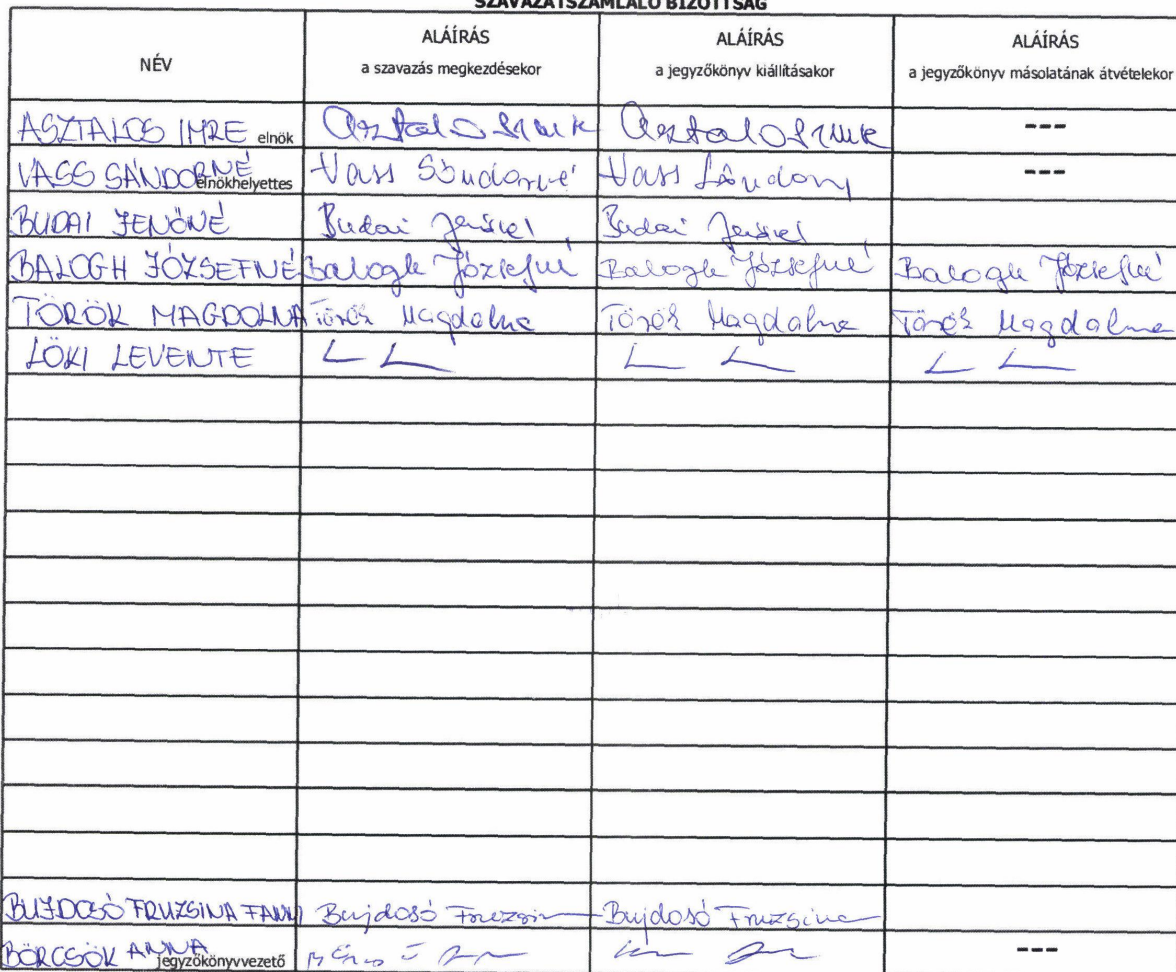 SZAVAZATSZÁMLÁLÓ BIZOTTSÁG
NÉV
ALÁÍRÁS
a szavazás megkezdésekor
ALÁÍRÁS
a jegyzőkönyv kiállításakor
ALÁÍRÁS
a jegyzőkönyv másolatának átvételekor
ASZTALOS IMRE elnök Asztalos Imre Asztalos Imre ---
VASS SÁNDORNÉ elnökhelyettes Vass Sándorné Vass Sándorné ---
BUDAI JENŐNÉ Budai Jenőné Budai Jenőné
BALOGH JÓZSEFNÉ Balogh Józsefné Balogh Józsefné Balogh Józsefné
TÖRÖK MAGDOLNA Török Magdolna Török Magdolna Török Magdolna
LÖKI LEVENTE L L L L L L
BUJDOSÓ FRUZSINA FANNI Bujdosó Fruzsin Bujdosó Fruzsina
BÖRCSÖK ANNA jegyzőkönyvvezető ---